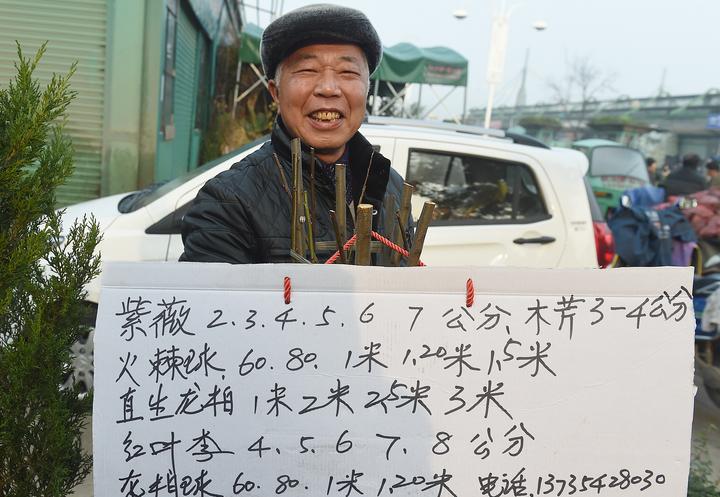 紫薇 2.3.4.5.6 7 公分、木芹 3-4公分
火棘球. 60. 80. 1米 1.20米 1.5米
直生龙柏 1米 2米 2.5米 3米
红叶李 4.5.6 7.8 公分
龙柏球 60. 80. 1米 1.20米 电话.13735428030